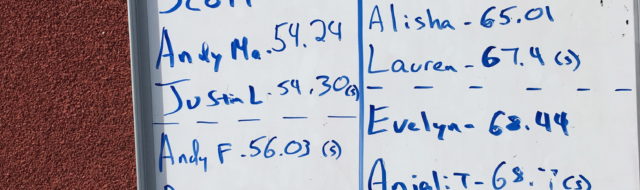 Scott
Andy Ma. 54.24
Justin L. 54.30 (s)
Andy F. 56.03 (s)
Alisha - 65.01
Lauren - 67.4 (s)
Evelyn - 68.44
Anjali T - 68. (s)